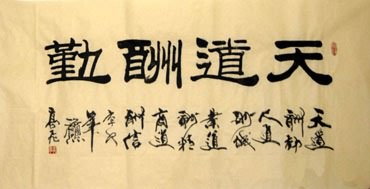 天道酬勤
天道
酬勤
人道
酬诚
業道
酬精
商道
酬信